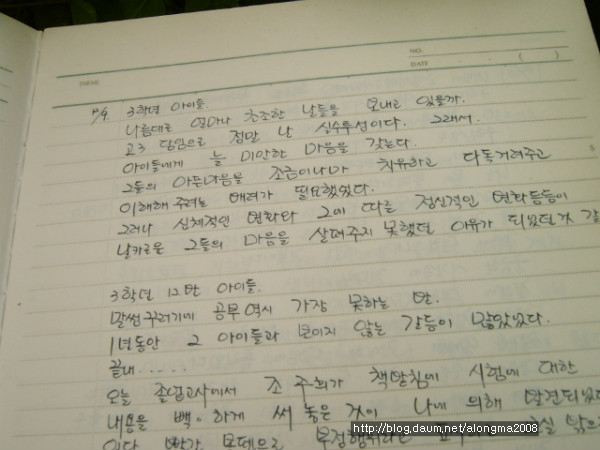 NO.
DATE ( )
3학년 아이들.
나름대로 얼마나 초조한 날들을 보내고 있을까.
고3 담임으로 정말 난 실수투성이다. 그래서
아이들에게 늘 미안한 마음을 갖는다.
그들의 아픈마음을 조금이나마 치유하고 다독거려주고
이해해 주려는 배려가 필요했었다.
그러나 신체적인 변화와 그에 따른 정신적인 변화등등이
날카로운 그들의 마음을 살펴주지 못했던 이유가 되었던가
3학년 12반 아이들.
말썽꾸러기에 공부 역시 가장 못하는 반.
1년동안 그 아이들과 보이지 않는 갈등이 많았었다.
끝내.....
오늘 졸업고사에서 조 주희가 책받침에 시험에 대한
내용을 빽빽하게 써 놓은 것이 나에 의해 발견되었
http://blog.daum.net/alongma2008